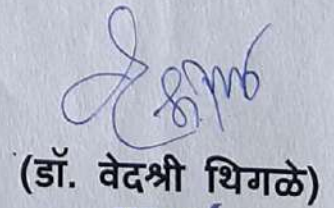 (डॉ. वेदश्री थिगळे)